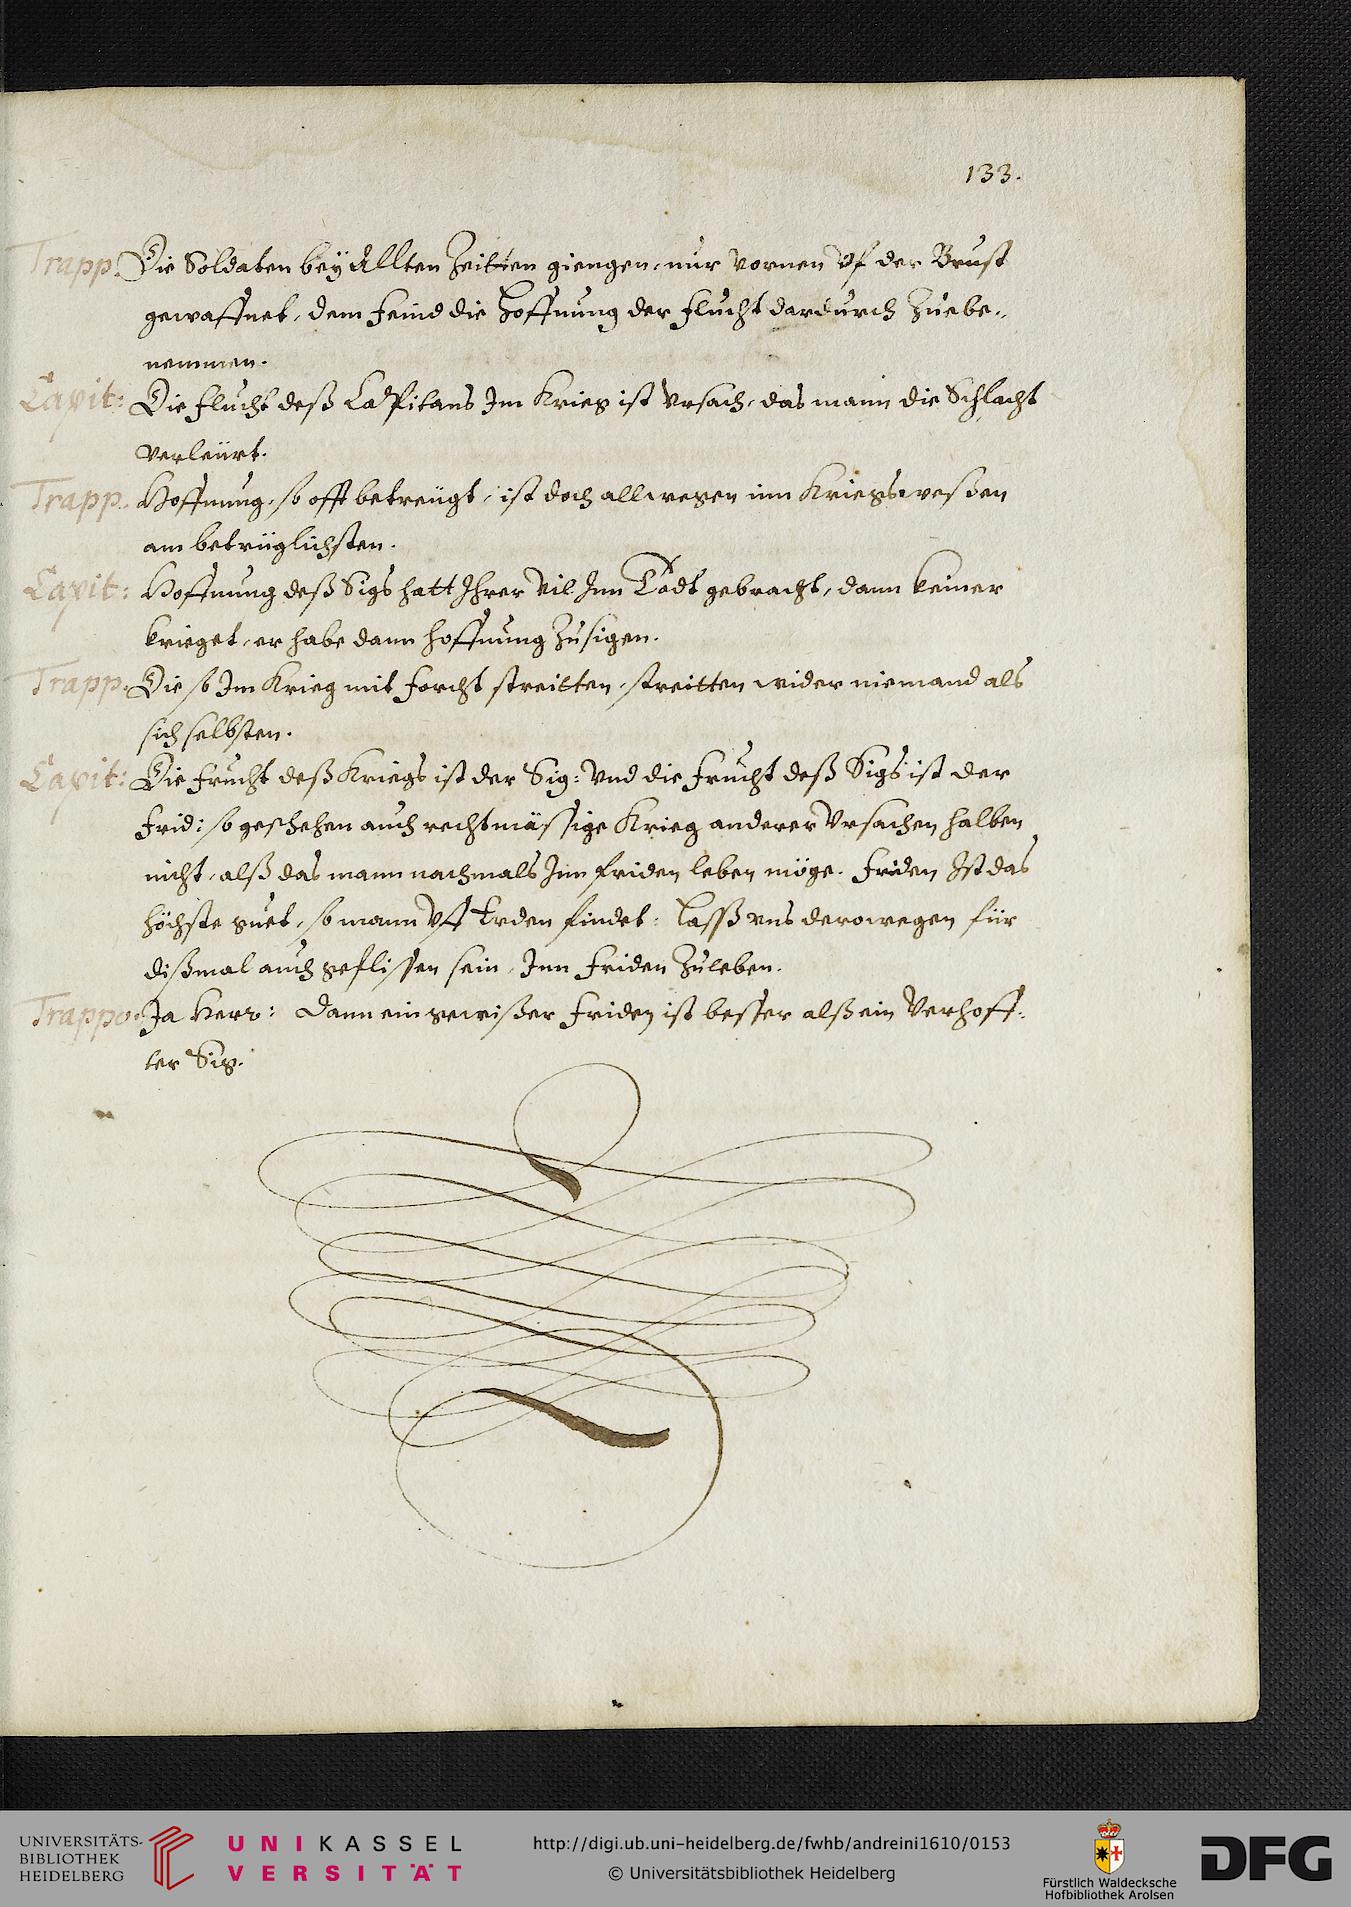 133.
Trapp. Die Soldaten beÿ Allten Zeitten giengen, nur vornen vf der Brust
gewaffnet, dem Feind die Hoffnung der Flucht dardurch Zuebe„
nemmen.
Capit: Die Flucht deß Capitans Im Krieg ist Vrsach, das mann die Schlacht
verleürt.
Trapp. Hoffnung, so offt betreügt, ist doch allwegen inn Kriegsweßen
am betrüglichsten.
Capit: Hoffnung deß Sigs hatt Ihrer vil Inn Todt gebracht, dann keiner
krieget, er habe dann hoffnung Zusigen.
Trapp. Die so Im Krieg mit Forcht streitten, streitten wider niemand als
sich selbsten.
Capit: Die Frucht deß Kriegs ist der Sig: Vnd die Frucht deß Sigs ist der
Frid: so geschehen auch rechtmässige Krieg anderer Vrsachen halben
nicht, alß das mann nachmals Inn friden leben möge. Friden Ist das
höchste guet, so mann vff Erden findet: Lasß vns derowegen für
dißmal auch geflissen sein, Inn Friden Zuleben.
Trappo. Ja Herr: Dann ein gewißer Friden ist besser alß ein Verhoff„
ter Sig.
UNIVERSITÄTS-
BIBLIOTHEK
HEIDELBERG
UNIKASSEL
VERSITÄT
http://digi.ub.uni-heidelberg.de/fwhb/andreini1610/0153
© Universitätsbibliothek Heidelberg
Fürstlich Waldecksche
Hofbibliothek Arolsen
DFG